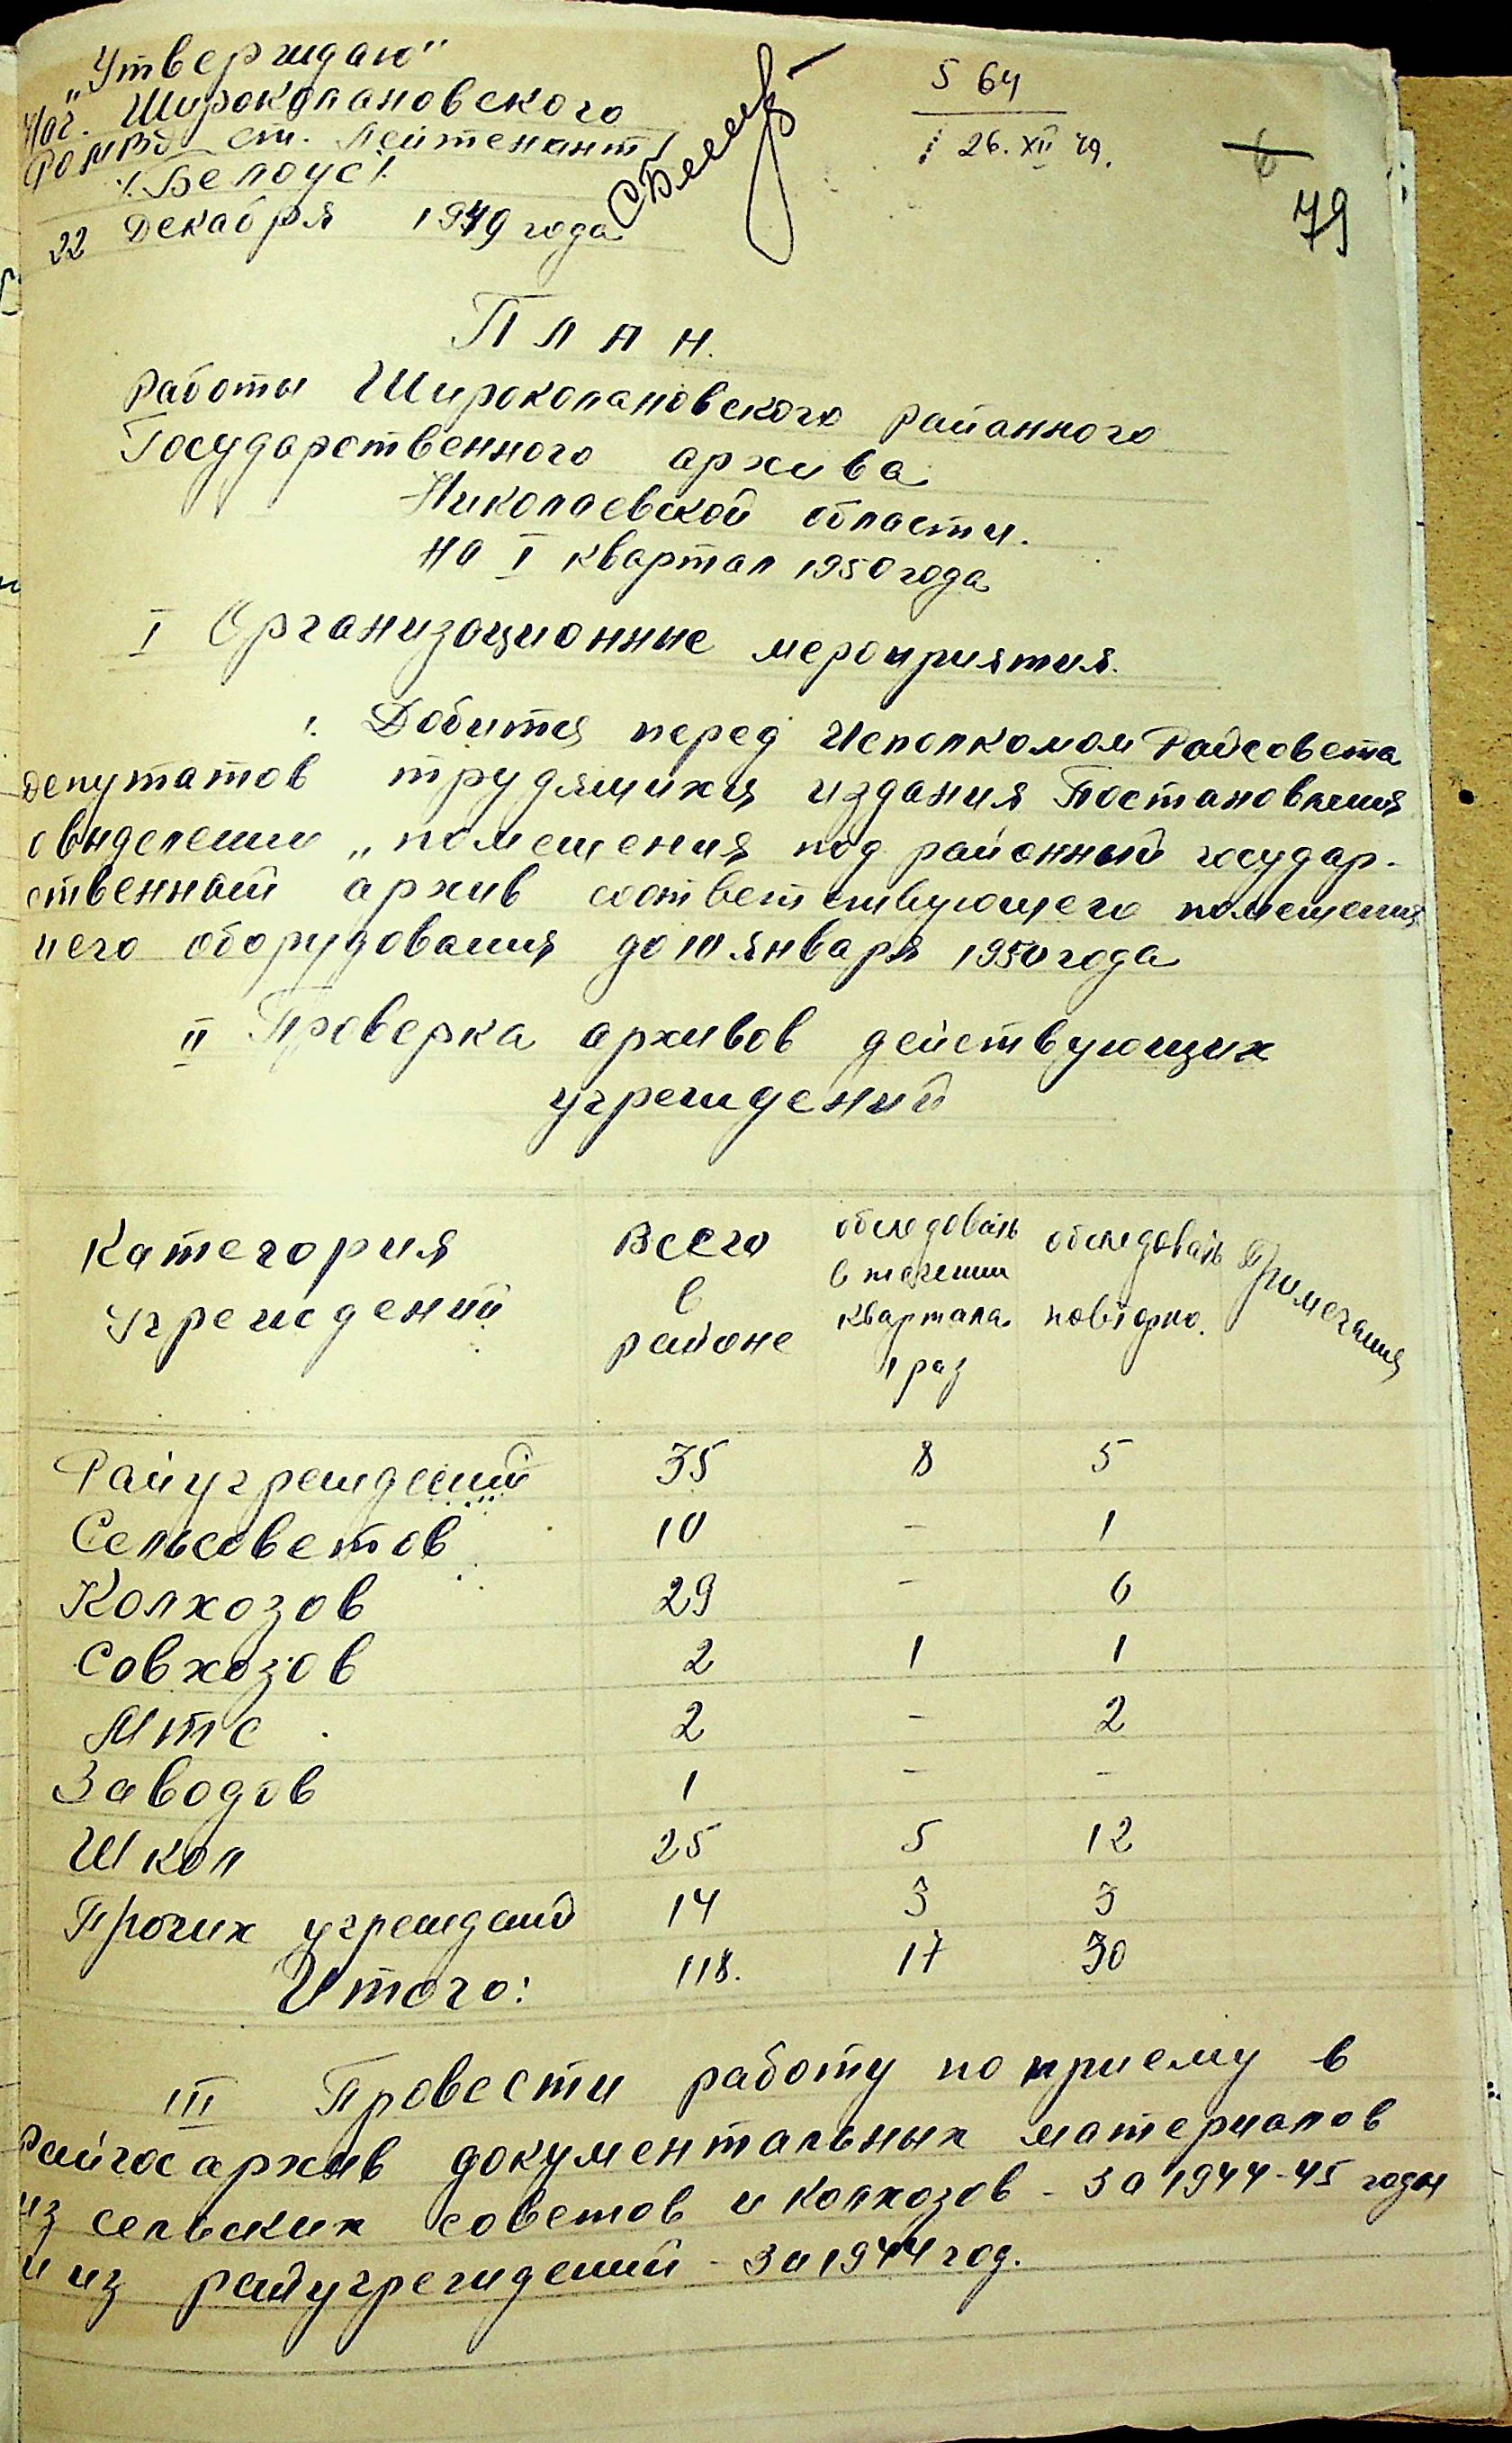 „Утверждаю"
Нач. Широколановского
РОМВД ст. Лейтенант
/Белоус/
22 Декабря 1949 года
564
26. XII 49.
79
План.
Работы Широколановского Районного
Государственного архива
Николаевской области.
на I квартал 1950 года
I Организационные мероприятия.
1. Добится перед Исполкомом Райсовета
депутатов трудящихся издания Постановления
о выделении „помещения под районный государ-
ственный архив соответствующего помещения
и его оборудования до 10 января 1950 года
II Проверка архивов действующих
учреждений
Категория учреждений | Всего в районе | обследовать в течении квартала 1 раз | обследовать повторно. | Примечания
Райучреждений 35 8 5
Сельсоветов 10 - 1
Колхозов 29 - 6
Совхозов 2 1 1
МТС 2 - 2
Заводов 1 - -
Школ 25 5 12
Прочих учреждений 14 3 3
Итого: 118. 17 30
III Провести работу по приему в
Райгосархив документальных материалов
из сельских советов и колхозов - за 1944-45 годы
и из райучреждений - за 1944 год.